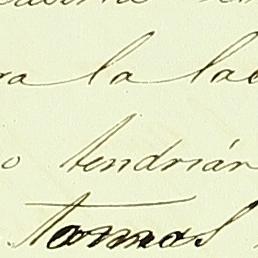 ra la lac
o tendrián
tomas